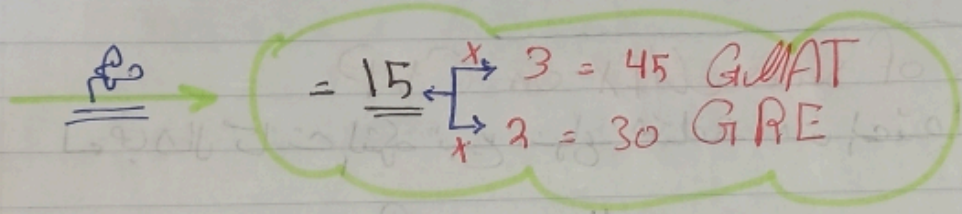 = 15 x 3 = 45 GMAT
x 2 = 30 GRE